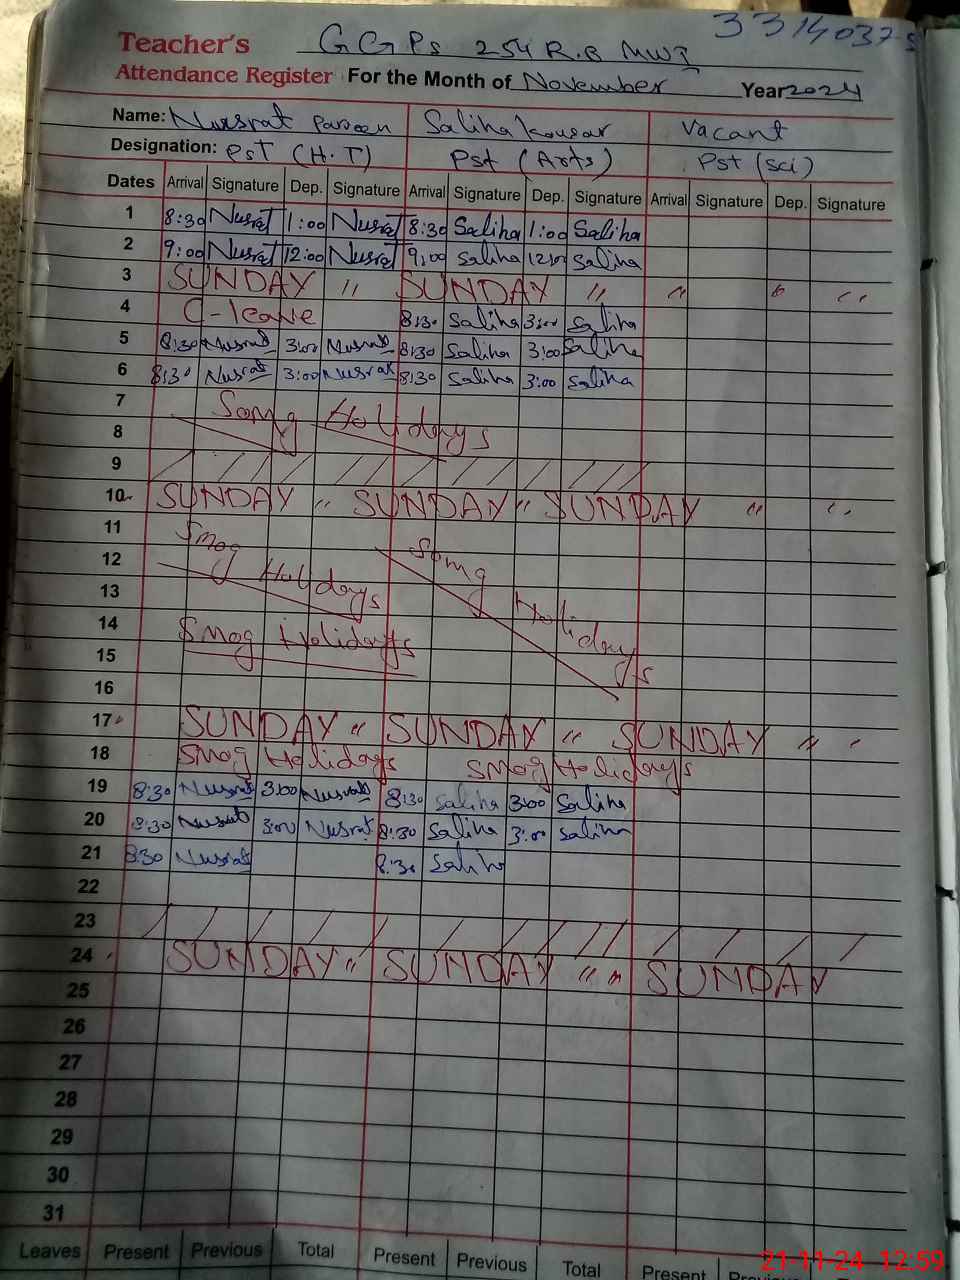 33140375
Teacher's GGPS 254 R.B MWI
Attendance Register For the Month of November Year 2024
Name: Nusrat Parveen Saliha Kousar Vacant
Designation: PST (H.T) Pst (Arts) Pst (sci)
Dates Arrival Signature Dep. Signature Arrival Signature Dep. Signature Arrival Signature Dep. Signature
1 8:30 Nusrat 1:00 Nusrat 8:30 Saliha 1:00 Saliha
2 9:00 Nusrat 12:00 Nusrat 9:00 Saliha 12:00 Saliha
3 SUNDAY " SUNDAY " " " "
4 C-leave 8:30 Saliha 3:00 Saliha
5 8:30 Nusrat 3:00 Nusrat 8:30 Saliha 3:00 Saliha
6 8:30 Nusrat 3:00 Nusrat 8:30 Saliha 3:00 Saliha
7 Somg Holidays
8
9
10 SUNDAY " SUNDAY " SUNDAY " "
11 Smog Holidays Somg Holidays
12
13
14 Smog Holidays
15
16
17 SUNDAY " SUNDAY " SUNDAY " "
18 Smog Holidays Smog Holidays
19 8:30 Nusrat 3:00 Nusrat 8:30 Saliha 3:00 Saliha
20 8:30 Nusrat 3:00 Nusrat 8:30 Saliha 3:00 Saliha
21 8:30 Nusrat 8:30 Saliha
22
23
24 SUNDAY " SUNDAY " " SUNDAY
25
26
27
28
29
30
31
Leaves Present Previous Total Present Previous Total Present
21-11-24 12:59